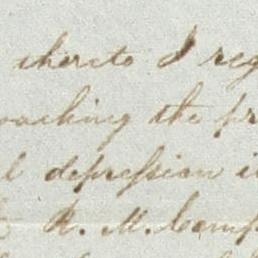 thereto I reg
oaching the pr
l depression i
R. M. Camp